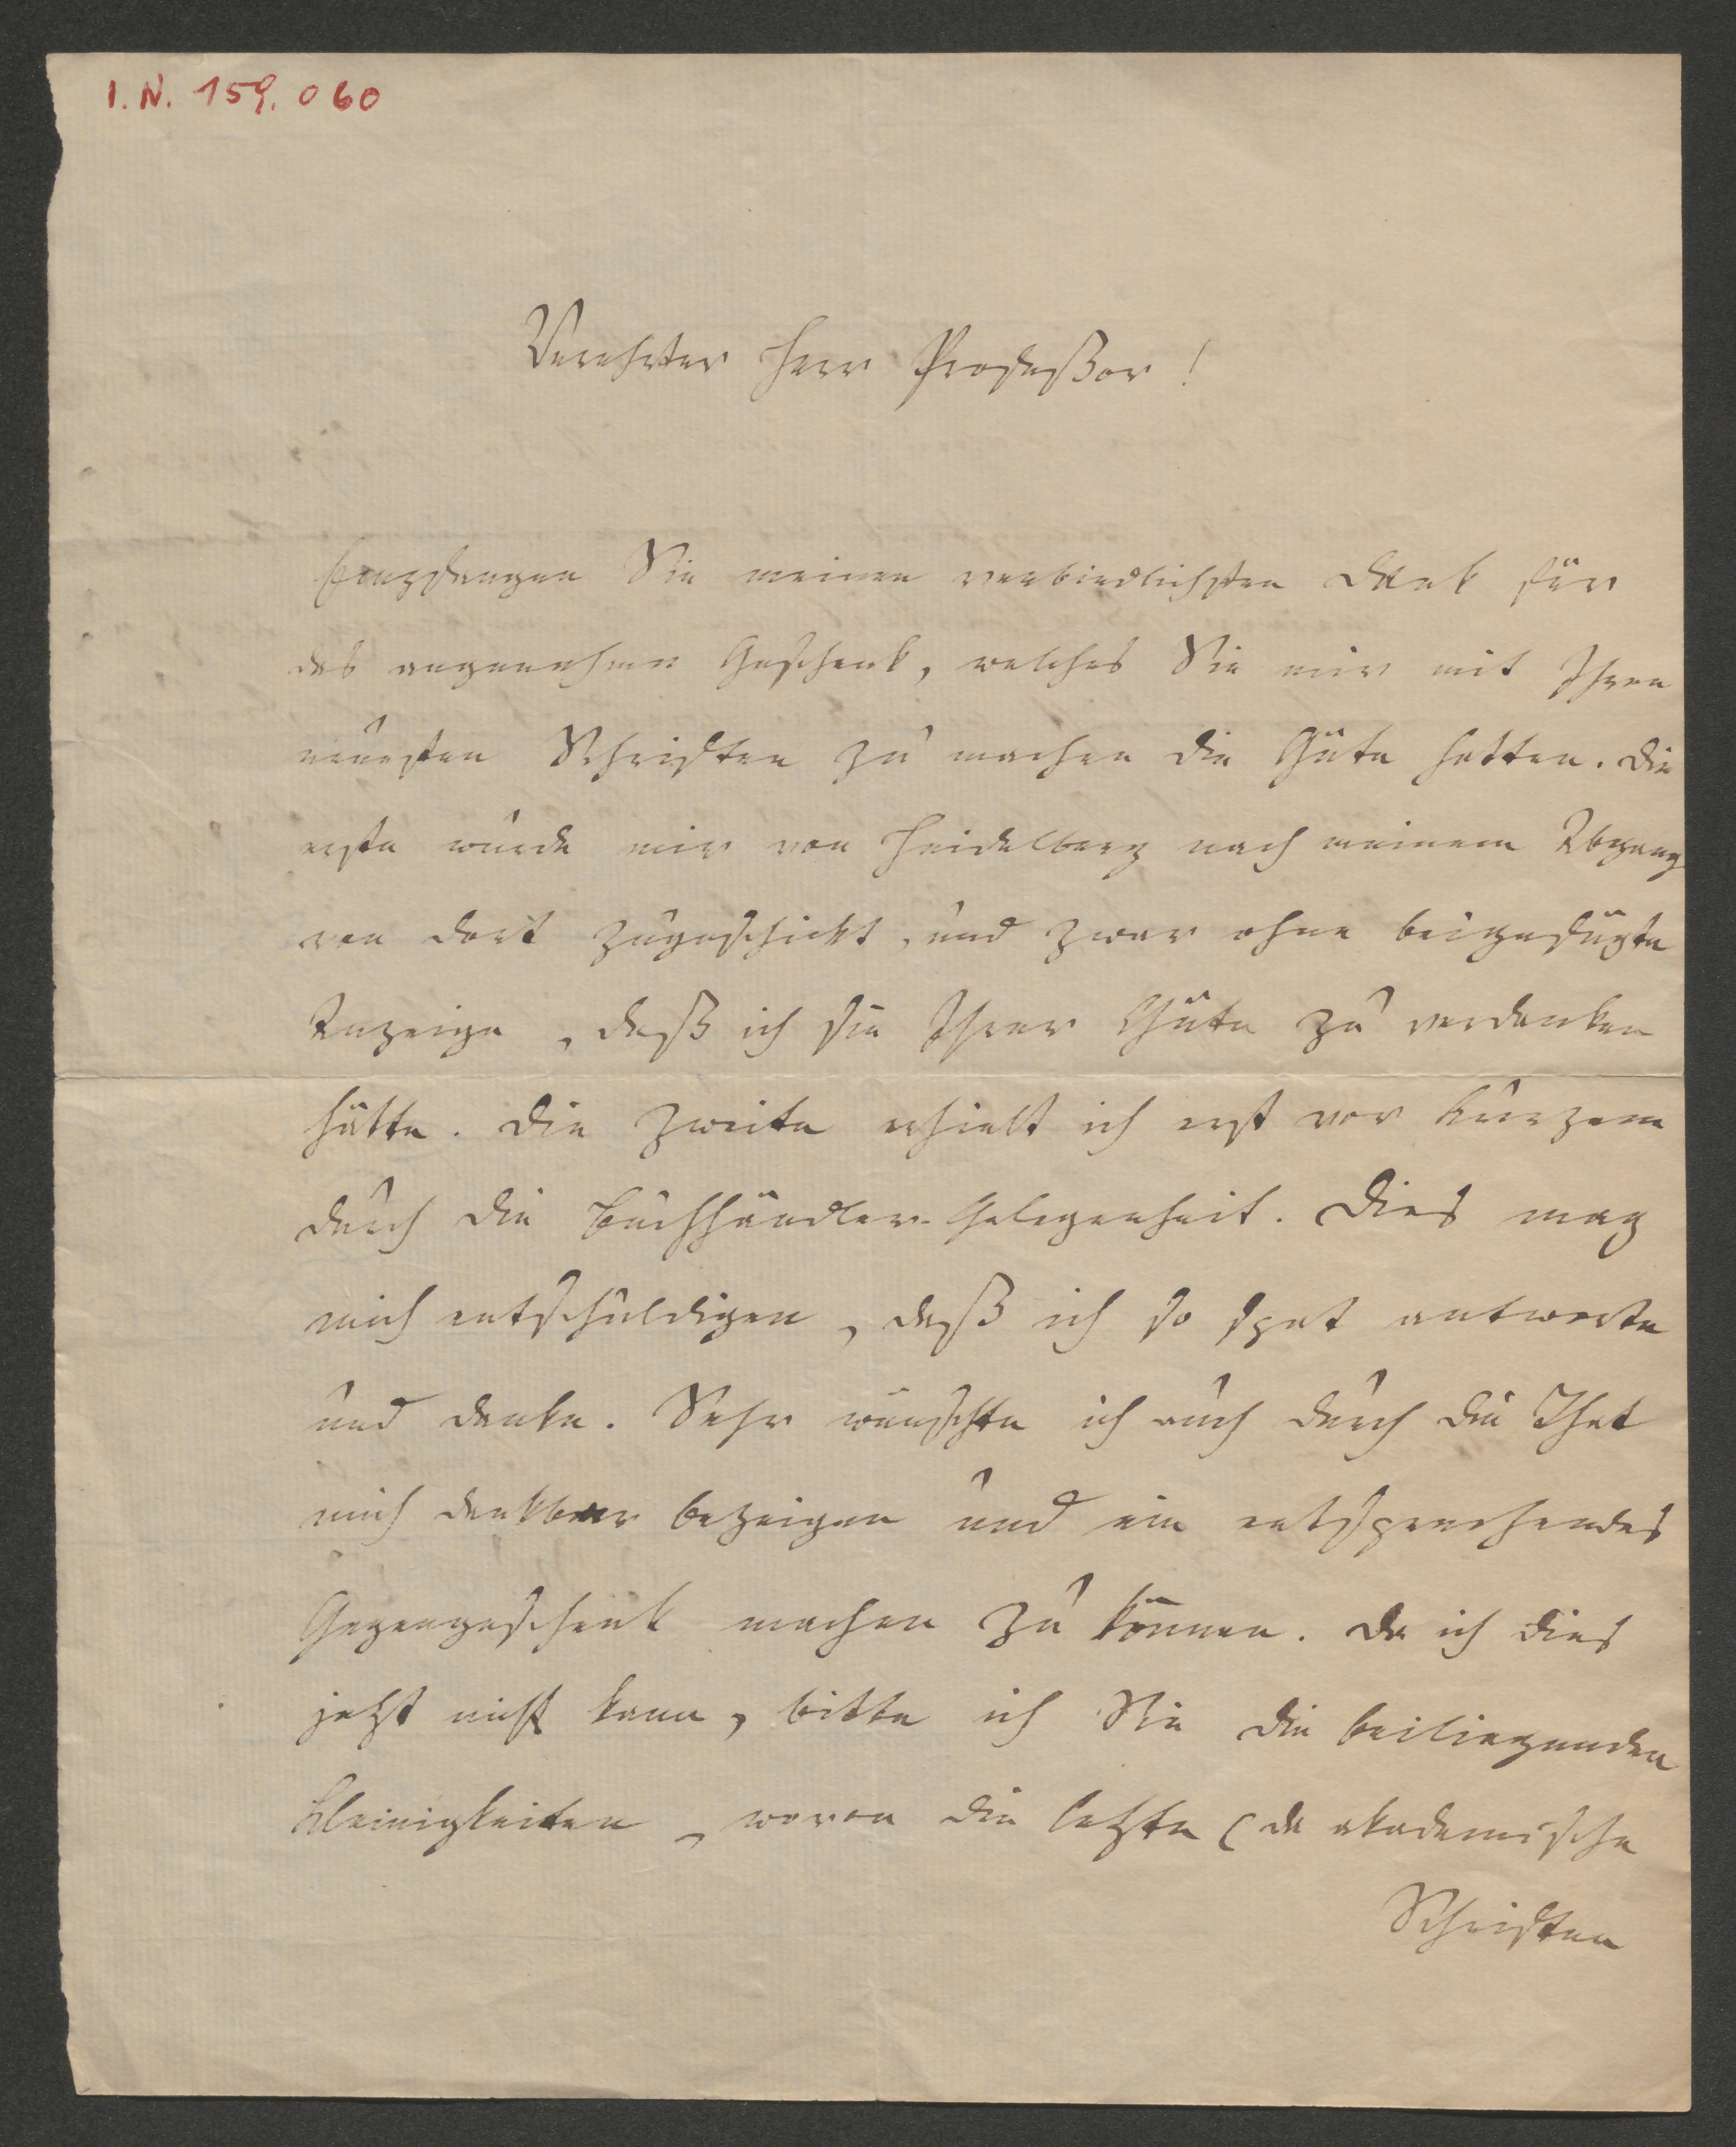 I. N. 159.060
Verehrter Herr Profeßor!
Empfangen Sie meinen verbindlichsten Dank für
das angenehme Geschenk, welches Sie mir mit Ihren
neuesten Schriften zu machen die Güte hatten. Die
erste wurde mir von Heidelberg nach meinem Abgang
von dort zugeschickt, und zwar ohne beigefügte
Anzeige, daß ich sie Ihrer Güte zu verdanken
hätte. Die zweite erhielt ich erst vor Kurzem
durch die Buchhändler-Gelegenheit. Dies mag
mich entschuldigen, daß ich so spät antworte
und danke. Sehr wünschte ich auch durch die That
mich dankbar bezeigen und ein entsprechendes
Gegengeschenk machen zu können. Da ich dies
jetzt nicht kann, bitte ich Sie die beiliegenden
Kleinigkeiten, wovon die letzte (da akademische
Schriften